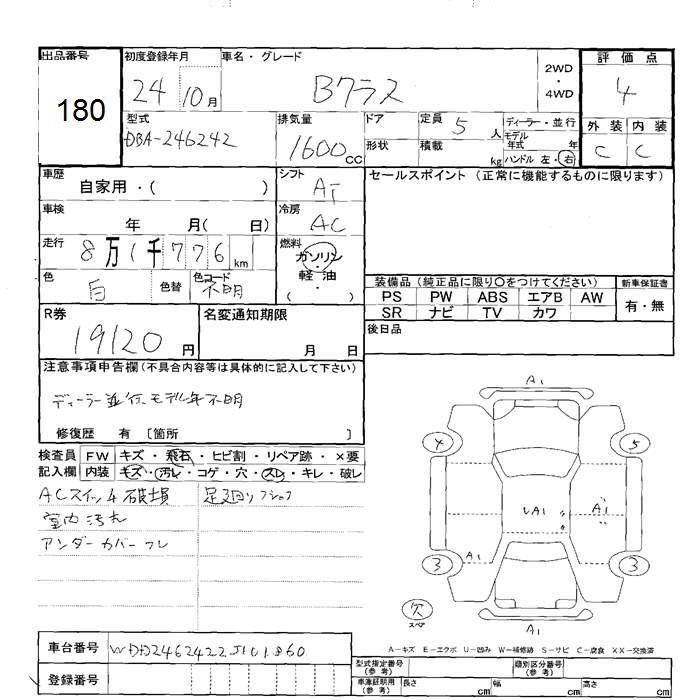 出品番号 初度登録年月 車名・グレード 2WD・4WD 評価点
180 24 10月 Bクラス 4
型式 排気量 ドア 定員 5 人 ディーラー・並行 外装 内装
DBA-246242 1600cc 形状 積載 kg モデル年式 年 C C
ハンドル 左・右
車歴 シフト セールスポイント (正常に機能するものに限ります)
自家用・( ) AT
車検 年 月( 日) 冷房 AC
走行 8万1千776km 燃料 ガソリン・軽油 ( )
色 白 色替 色コード 不明
装備品 (純正品に限り○をつけてください) 新車保証書
PS PW ABS エアB AW 有・無
SR ナビ TV カワ
R券 19120円 名変通知期限 月 日 後日品
注意事項申告欄 (不具合内容等は具体的に記入して下さい)
ディーラー並行、モデル年不明
修復歴 有 〔箇所 〕
検査員 FW キズ・飛石・ヒビ割・リペア跡・×要
記入欄 内装 キズ・汚レ・コゲ・穴・スレ・キレ・破レ
ACスイッチ破損 足廻り
室内汚れ
アンダーカバー
A1
4 5
A1 A1
A1
3 3
欠 スペア
A1
A-キズ E-エクボ U-凹み W-補修跡 S-サビ C-腐食 XX-交換済
車台番号
登録番号
型式指定番号(参考) 類別区分番号(参考)
車庫証明用(参考) 長さ cm 幅 cm 高さ cm